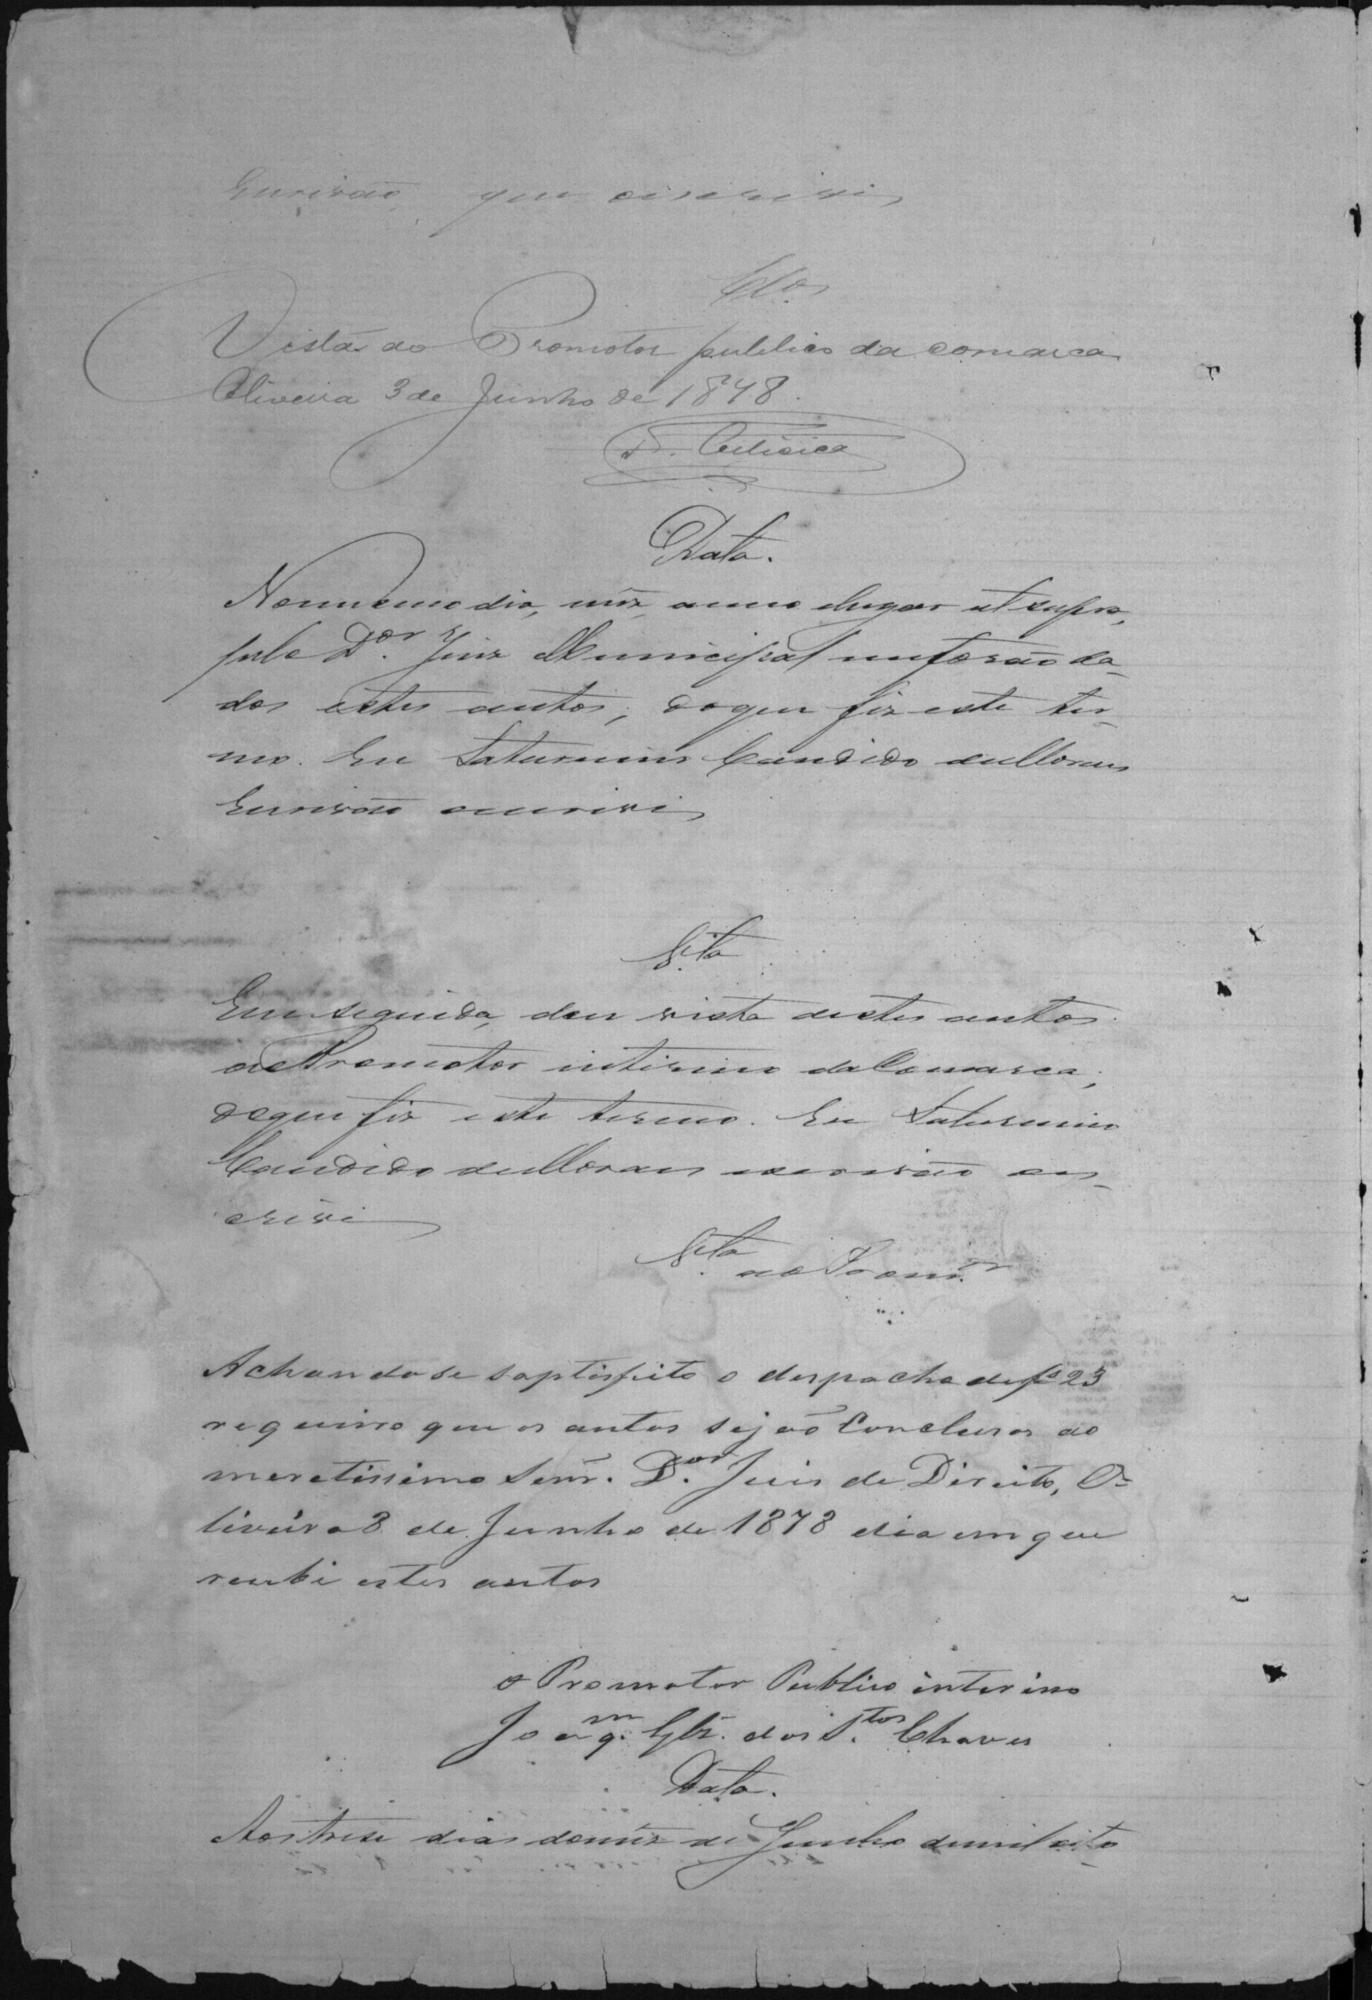 Escrivão que oescrivi
Clos
Vista ao Promotor publico da comarca
Oliveira 3 de Junho de 1878.
Data.
No mesmo dia, mez, anno elugar ut supra,
pelo D.or Juiz Municipal me forão da-
dos estes autos; doque fiz este ter-
mo. Eu Saturnino Candido deMoraes
Escrivão oescrivi
V.ta
Em seguida, dou vista destes autos
aoPromotor interino daComarca;
doque fiz este termo. Eu Saturnino
Candido deMoraes escrivão oes-
crivi
V.ta
ao Prom.or
Achandose saptisfeito o despacho de fs 23
requeiro que os autos sejão Concluzos ao
meretissimo Senr. D.or Juis de Direito, O-
liveira 8 de Junho de 1878 dia em que
recebi estes autos
o Promotor Publico interino
Joaq.m Glz. dos S.tos Chaves
Data.
Aos treze dias domez de Junho demil oito